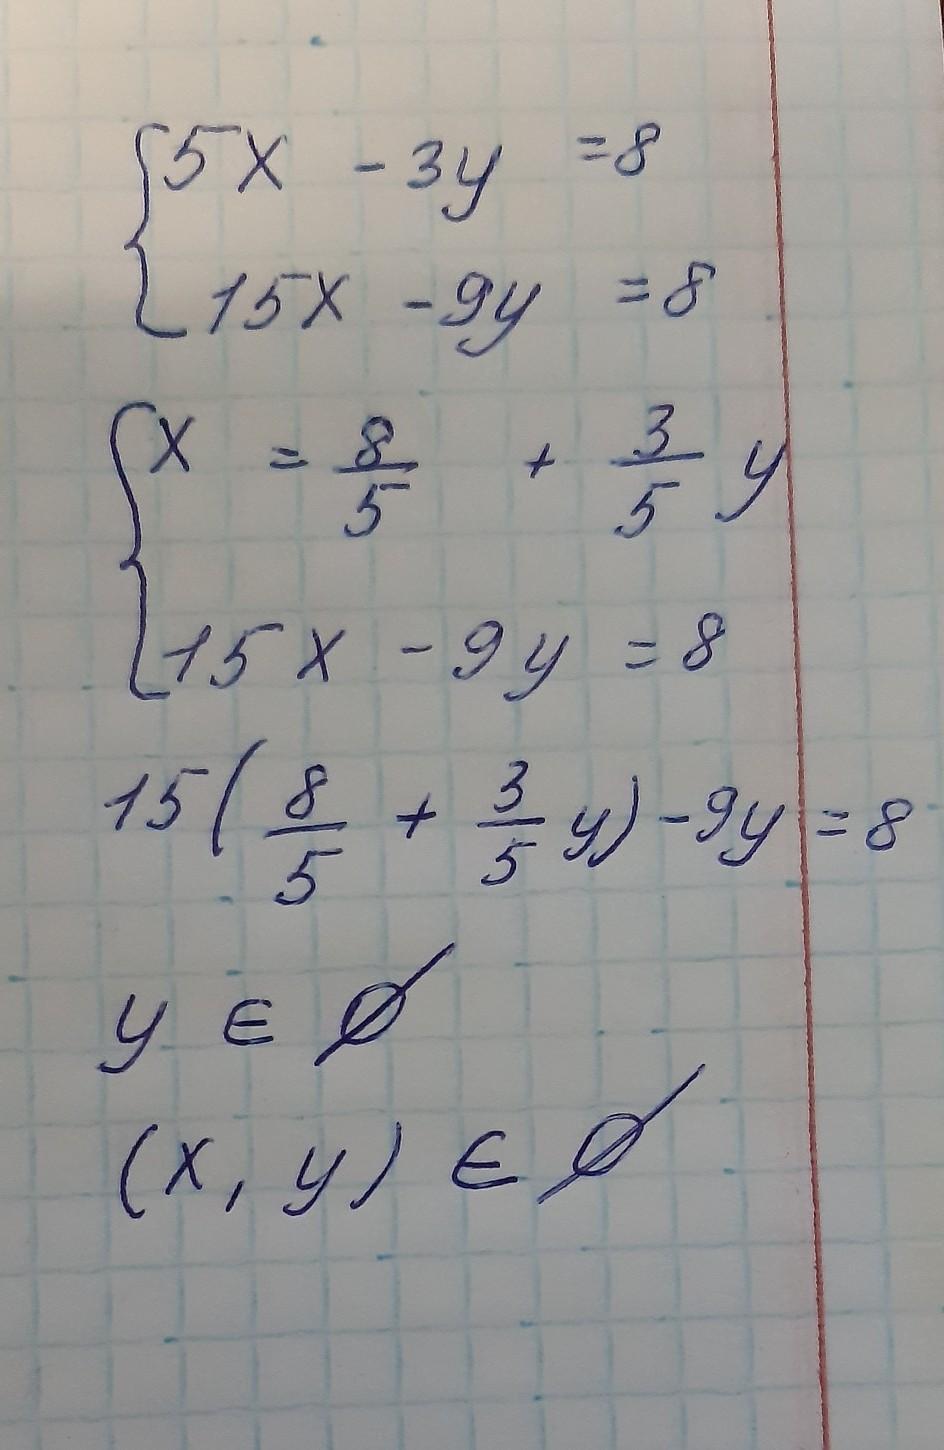 {5x - 3y = 8
15x - 9y = 8
{x = 8/5 + 3/5 y
15x - 9y = 8
15(8/5 + 3/5 y) - 9y = 8
y ∈ ∅
(x, y) ∈ ∅